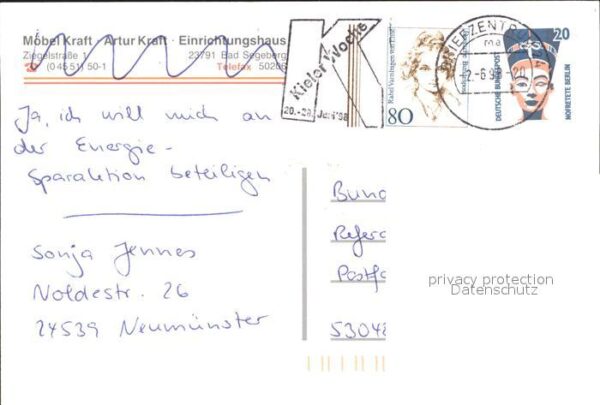 Möbel Kraft · Artur Kraft · Einrichtungshaus
Ziegelstraße 1 23791 Bad Segeberg
(0 45 51) 50-1 Telefax 5026
Kieler Woche
20.-28. Juni '98
Rahel Varnhagen von Ense
80
BRIEFZENTRUM
ma
-2.-6.98-20
20
DEUTSCHE BUNDESPOST
NOFRETETE BERLIN
Ja, ich will mich an
der Energie-
Sparaktion beteiligen
Sonja Jennes
Noldestr. 26
24539 Neumünster
Bund
Refera
Postfa
53048
privacy protection
Datenschutz